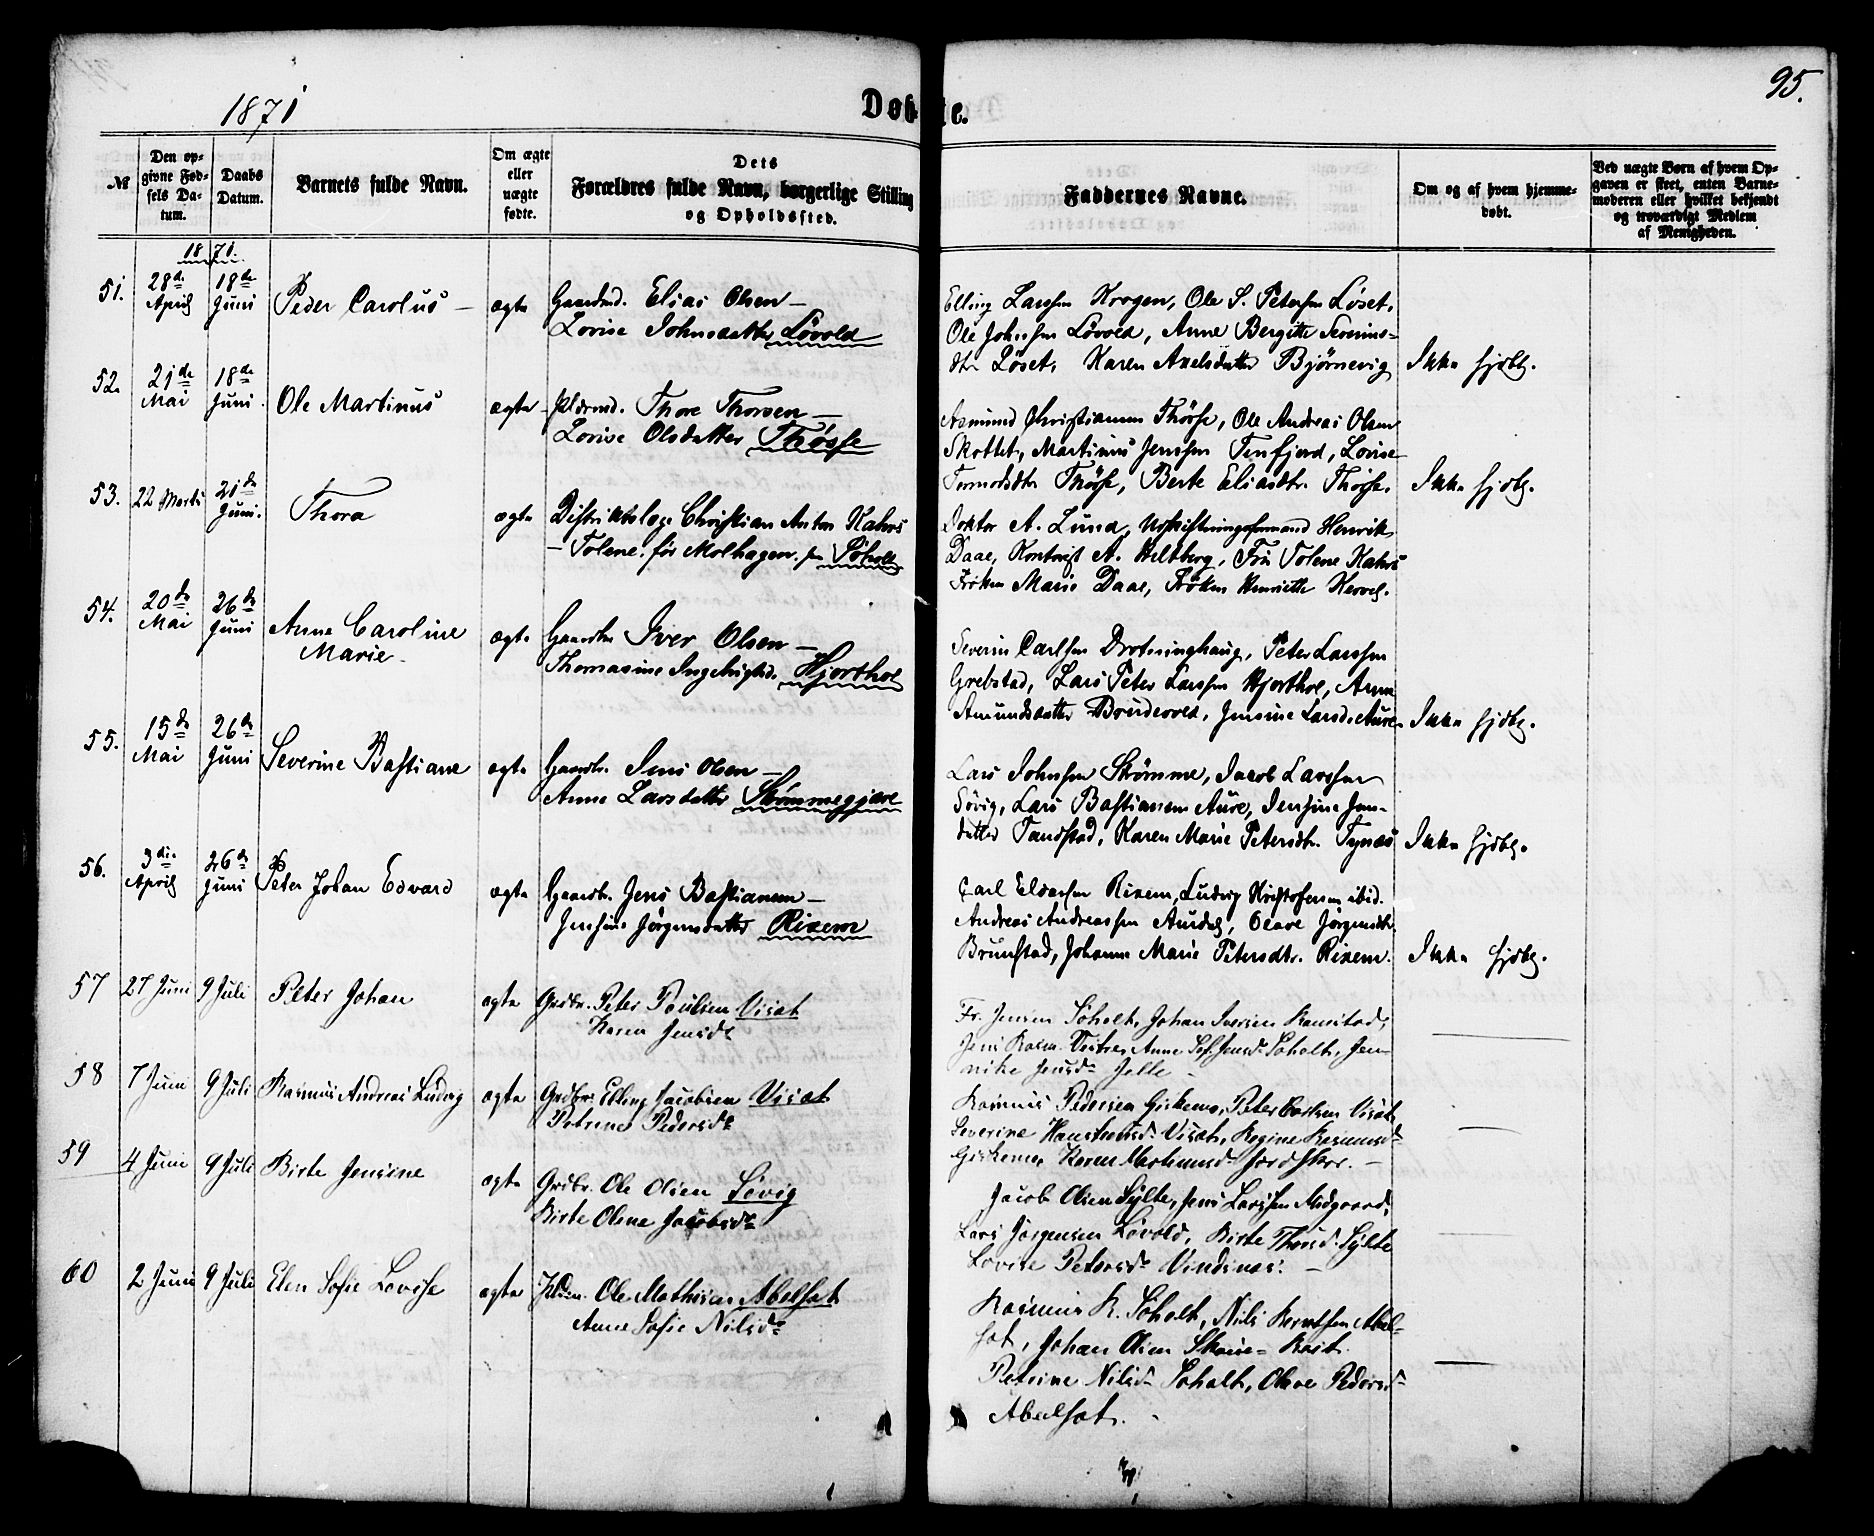 1871
Døbte.
95.
№
Den opgivne Fødsels Datum.
Daabs Datum.
Barnets fulde Navn.
Om ægte eller uægte fødte.
Dets Forældres fulde Navn, borgerlige Stilling og Opholdssted.
Faddernes Navne.
Om og af hvem hjemmedøbt.
Ved uægte Børn af hvem Opgaven er skeet, enten Barnemoderen eller hvilket bekjendt og troværdigt Medlem af Menigheden.
1871.
51. 28de April 18de Juni Peder Carolus – ægte Gaardmd. Elias Olsen –
Lovise Johnsdatter Løvold
Elling Larssen Krogen, Ole S. Petersen Løset,
Ole Johnsen Løvold, Anne Bergitte
dtr Løset, Karen Axelsdatter Bjørnevig Ikke hjdbt.
52. 21de Mai 18de Juni. Ole Martinus ægte Thore Thorsen –
Lovise Olsdatter Thøsse
Asmund Christiansen Thøsse, Ole Andreas Olsen
Skottet, Martinus Jenssen Tenfjord, Lovise
Tormodsdtr Thøsse, Berte Eliasdtr. Thøsse. Ikke hjdbt.
53. 22 Marts 21de Juni. Thora ægte Distriktslæge Christian Anton Kahrs
– Tolene. før Molhagen. Søholt
Doktor A. Lund, Udskiftningsformand Henrik
Daae, A. Heltberg, Fru Tolene Kahrs
Frøken Marie Daae, Frøken Henriette
54. 20de Mai 26de Juni Anne Caroline
Marie – ægte Iver Olsen –
Thomasine Hjorthol
Severin Carlsen Drotninghaug, Peter Larssen
Grebstad, Lars Peter Larssen Hjorthol, Anne
Amundsdatter Jensine Larsd. Aure Ikke hjdbt.
55. 15de Mai 26de Juni Severine Bastiane ægte Gaardbr. Jens Olsen –
Anne Larsdatter Strømmegjære
Lars Johnsen Strømme, Jacob Larssen
Søvig, Lars Bastiansen Aure, Jensine Jens-
datter Tandstad, Karen Marie Petersdtr. Tynæs Ikke hjdbt.
56. 3die April 26de Juni Peter Johan Edvard ægte Gaardbr. Jens Bastiansen –
Jensine Jørgensdatter Rixem
Carl Eldarsen Rixem, Ludvig Kristofersen ibid.
Andreas Andreassen Aurdal, Olave Jørgensdtr.
Brunstad, Johanne Marie Petersdtr. Rixem. Ikke hjdbt.
57 27 Juni 9 Juli Peter Johan ægte Grdbr. Peter Paulsen Viset
Karen Jensdr
Fr. Jensen Søholt, Johan Iversen Ramstad,
Jens Rasm. Vestre, Anne Sof. Jensdr Søholt, Jen-
nike Jensdr Jelle –
58 7 Juni 9 Juli Rasmus Andreas Ludvig ægte Grdbr. Elling Jacobsen Viset
Petrine Pedersdr
Rasmus Pedersen Giskemo, Peter Carlsen Viset,
Severine Viset, Regine Rasmusdr
Giskemo, Karen Martinusdr –
59 4 Juni 9 Juli Birte Jensine ægte Grdbr. Ole Olsen Søvig
Birte Oline Jacobsdr
Jacob Olsen Sylte, Jens Larssen Midgaard,
Lars Jørgensen Løvold, Birte Thorsd. Sylte
Lovise Petersdr Vindsnes. –
60 2 Juni 9 Juli Elen Sofie Lovise ægte Ole Mathisen Abelset
Anne Sofie Nilsdr
Rasmus R. Søholt, Nils Berntsen Abel-
set, Johan Olsen
Petrine Nilsdr Søholt, Olave Pedersdr
Abelset.